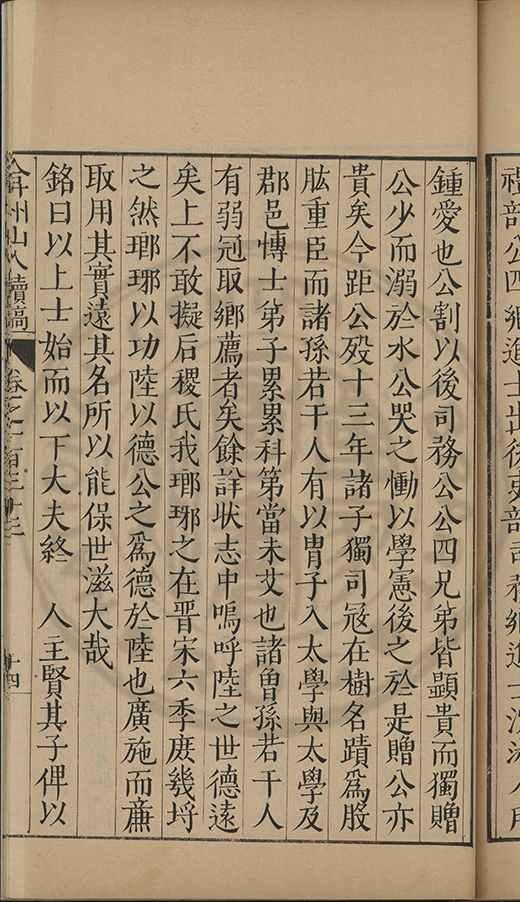 禮部公四鄉進士出後吏部
鍾愛也公割以後司務公公四兄弟皆顯貴而獨贈
公少而溺於水公哭之慟以學憲後之於是贈公亦
貴矣今距公殁十三年諸子獨司寇在樹名蹟爲股
肱重臣而諸孫若干人有以胄子入太學與太學及
郡邑博士弟子累累科第當未艾也諸曾孫若干人
有弱冠取鄉薦者矣餘詳狀志中嗚呼陸之世德遠
矣上不敢擬后稷氏我瑯琊之在晋宋六季庶幾埒
之然瑯琊以功陸以德公之爲德於陸也廣施而亷
取用其實遠其名所以能保世滋大哉
銘曰以上士始而以下大夫終　人主賢其子俾以
弇州山人續稿　卷之一百三十三　十四